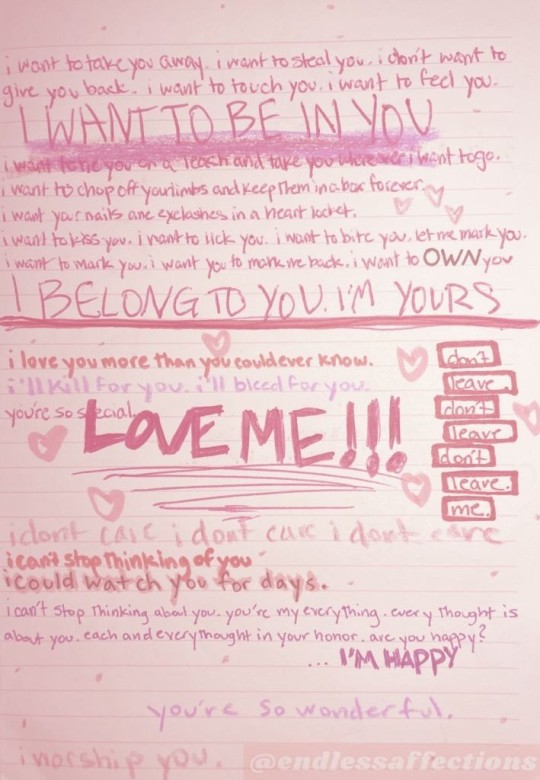 i want to take you away. i want to steal you. i don't want to
give you back. i want to touch you. i want to feel you.
I WANT TO BE IN YOU
i want to tie you on a leash and take you wherever i want to go.
i want to chop off your limbs and keep them in a box forever.
i want your nails ane eyelashes in a heart locket.
i want to kiss you. i want to lick you. i want to bite you. let me mark you.
i want to mark you. i want you to mark me back. i want to OWN you
I BELONG TO YOU. I'M YOURS
i love you more than you could ever know.
i'll kill for you. i'll bleed for you.
you're so special.
LOVE ME!!!
don't
leave.
don't
leave
don't
leave.
me.
i dont care i dont care i dont care
i can't stop thinking of you
i could watch you for days.
i can't stop thinking about you. you're my everything. every thought is
about you. each and every thought in your honor. are you happy?
... I'M HAPPY
you're so wonderful.
i worship you.
@endlessaffections